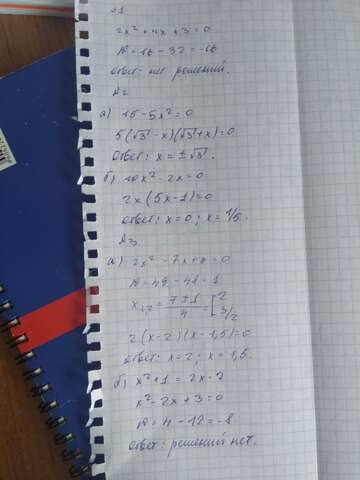 №1
2x² + 4x + 3 = 0
D = 16 - 32 = -16
ответ: нет решений.
№2
а) 15 - 5x² = 0
5(√3 - x)(√3 + x) = 0
ответ: x = ± √3.
б) 10x² - 2x = 0
2x(5x - 1) = 0
ответ: x = 0; x = 1/5.
№3
а) 2x² - 7x + 6 = 0
D = 49 - 48 = 1
x₁,₂ = 7 ± 1 / 4 = [ 2 3/2
2(x - 2)(x - 1,5) = 0
ответ: x = 2; x = 1,5.
б) x² + 1 = 2x - 2
x² - 2x + 3 = 0
D = 4 - 12 = -8.
ответ: решений нет.